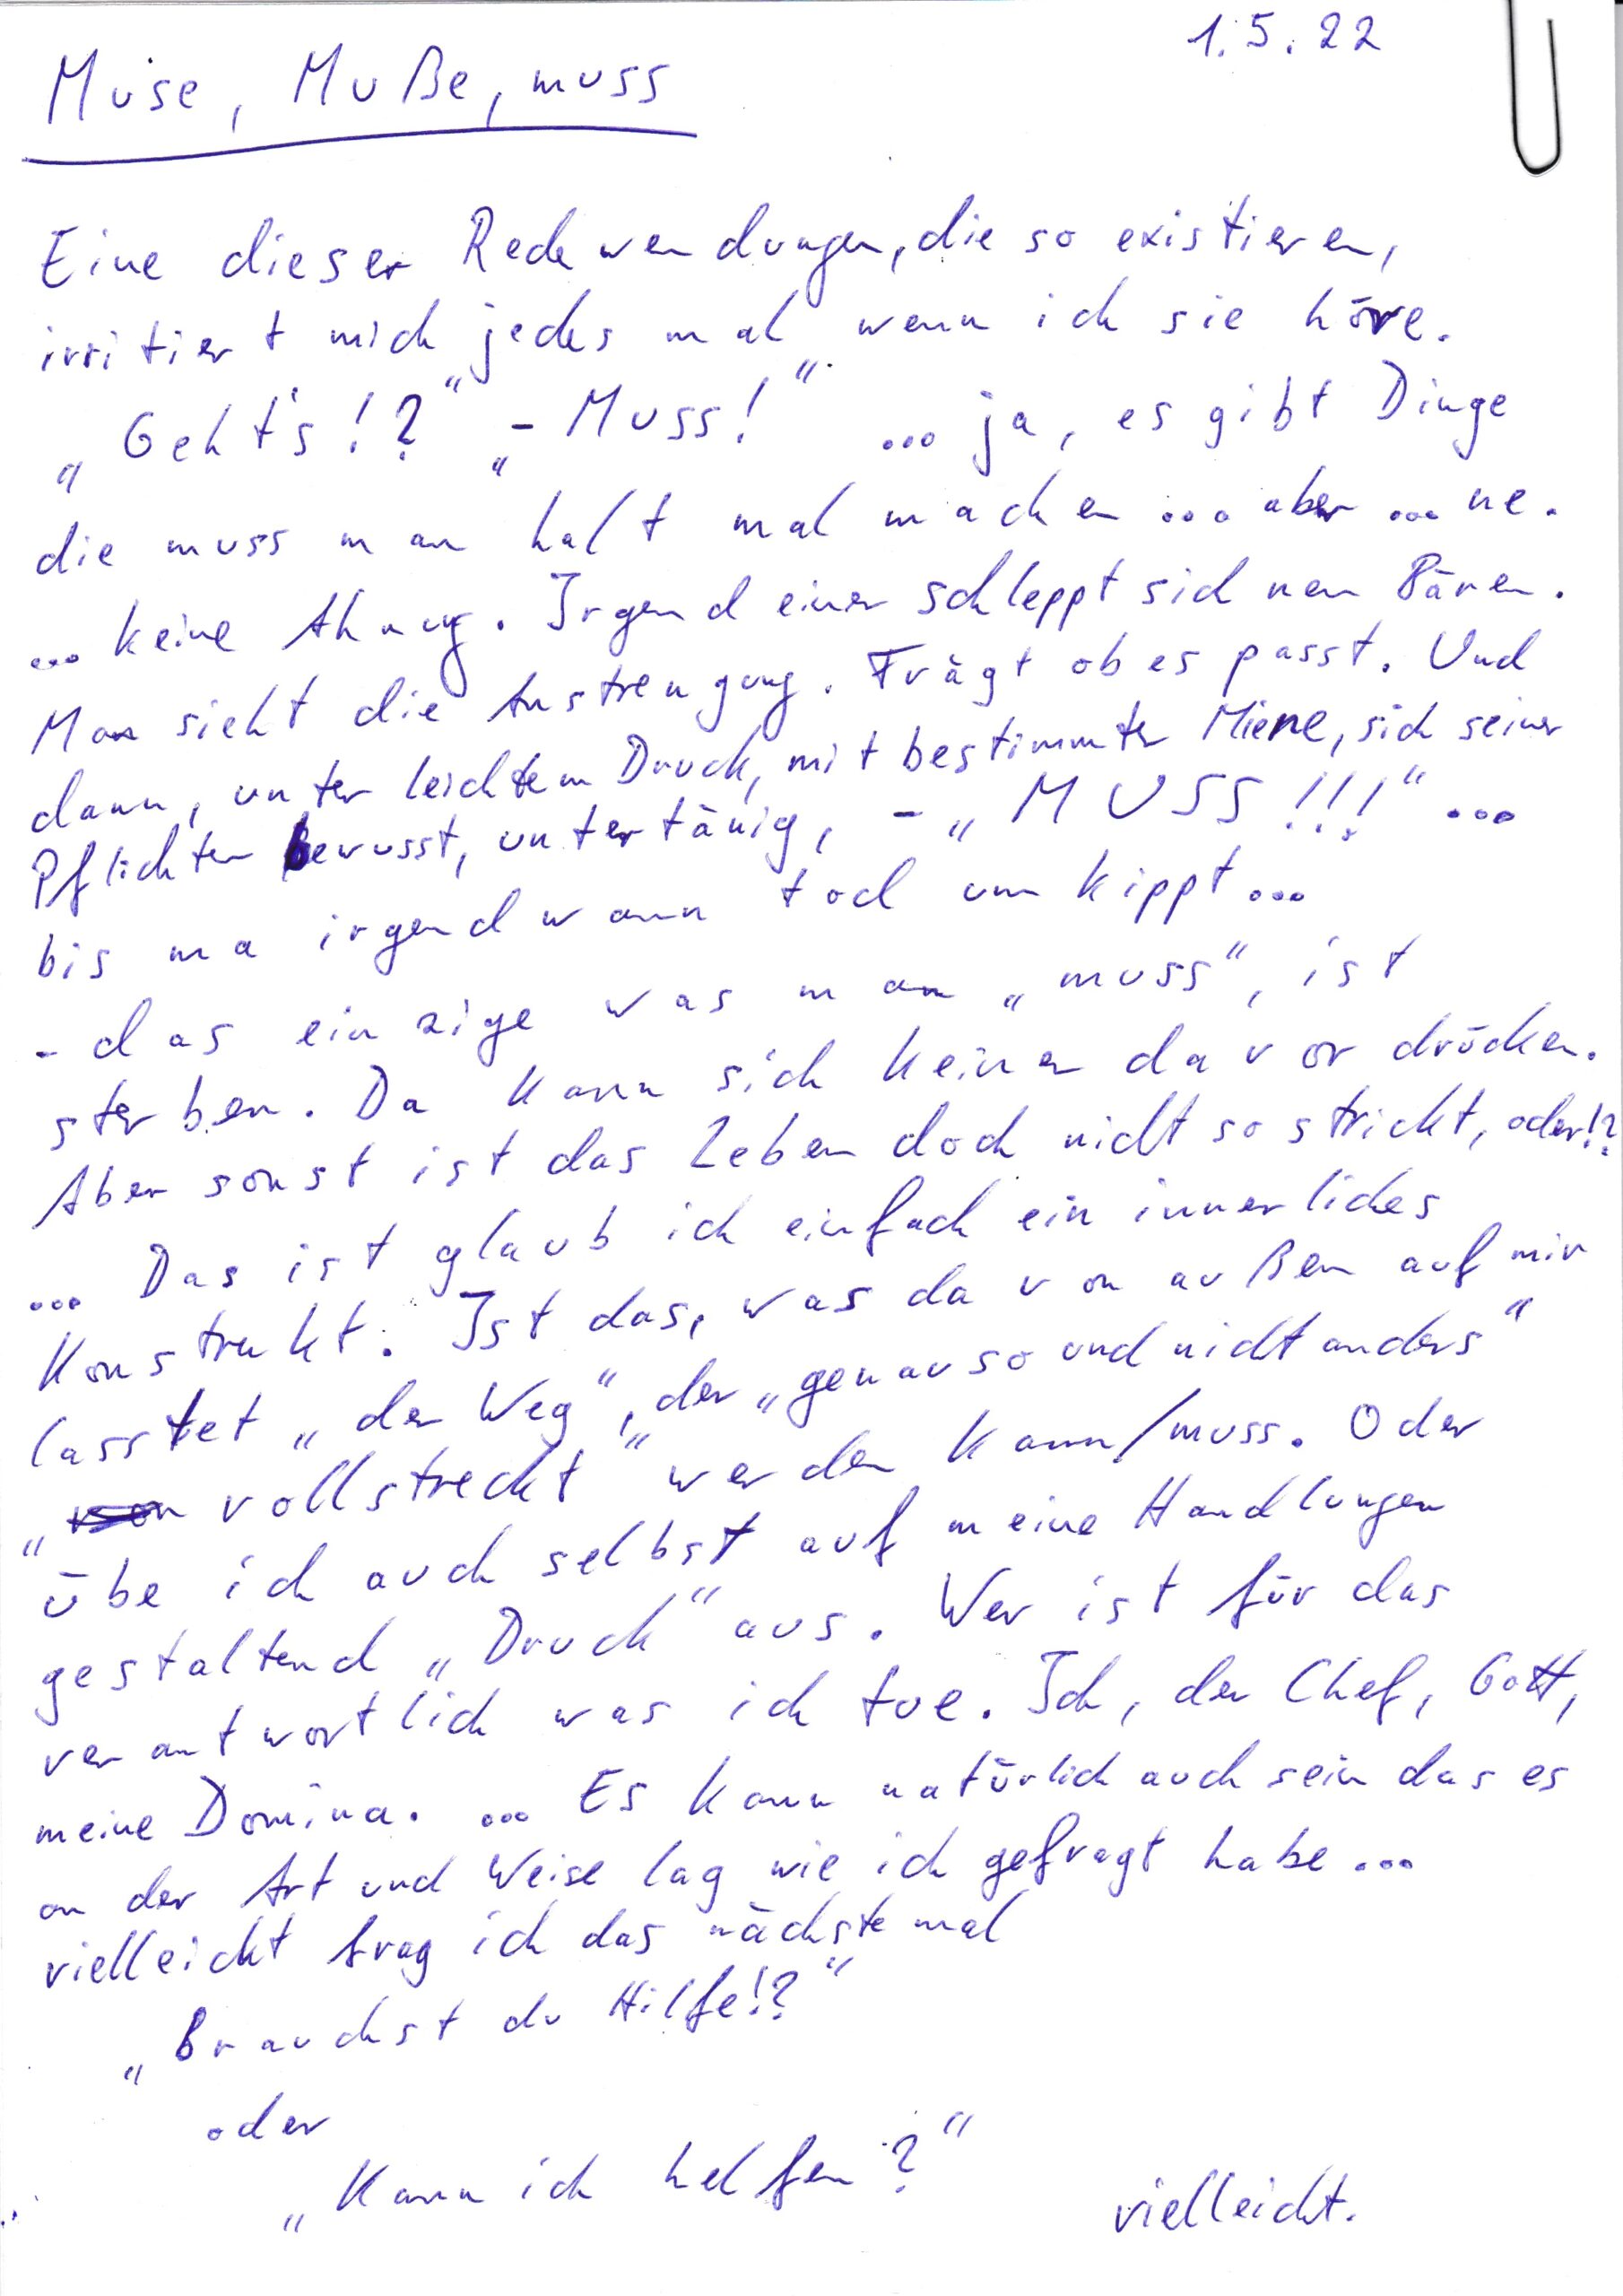 1.5.22
Muse, Muße, muss
Eine dieser Redewendungen, die so existieren,
irritiert mich jedes mal wenn ich sie höre.
„Geht's!?" „- Muss!" ... ja, es gibt Dinge
die muss man halt mal machen ... aber ... ne.
... keine Ahnung. Irgend einer schleppt sich nen Bären.
Man sieht die Anstrengung. Frägt ob es passt. Und
dann, unter leichtem Druck, mit bestimmter Miene, sich seiner
Pflichten bewusst, untertänig, - „MUSS!!!" ...
bis ma irgendwann tod umkippt...
- das einzige was man „muss", ist
sterben. Da kann sich keiner davor drücken.
Aber sonst ist das Leben doch nicht so strickt, oder!?
... Das ist glaub ich einfach ein innerliches
Konstrukt. Ist das, was da von außen auf mir
lasstet „der Weg", der „genauso und nicht anders"
„vollstreckt" werden kann/muss. Oder
übe ich auch selbst auf meine Handlungen
gestaltend „Druck" aus. Wer ist für das
verantwortlich was ich tue. Ich, der Chef, Gott,
meine Domina. ... Es kann natürlich auch sein das es
an der Art und Weise lag wie ich gefragt habe...
vielleicht frag ich das nächste mal
„Brauchst du Hilfe!?"
oder
„Kann ich helfen?"
vielleicht.